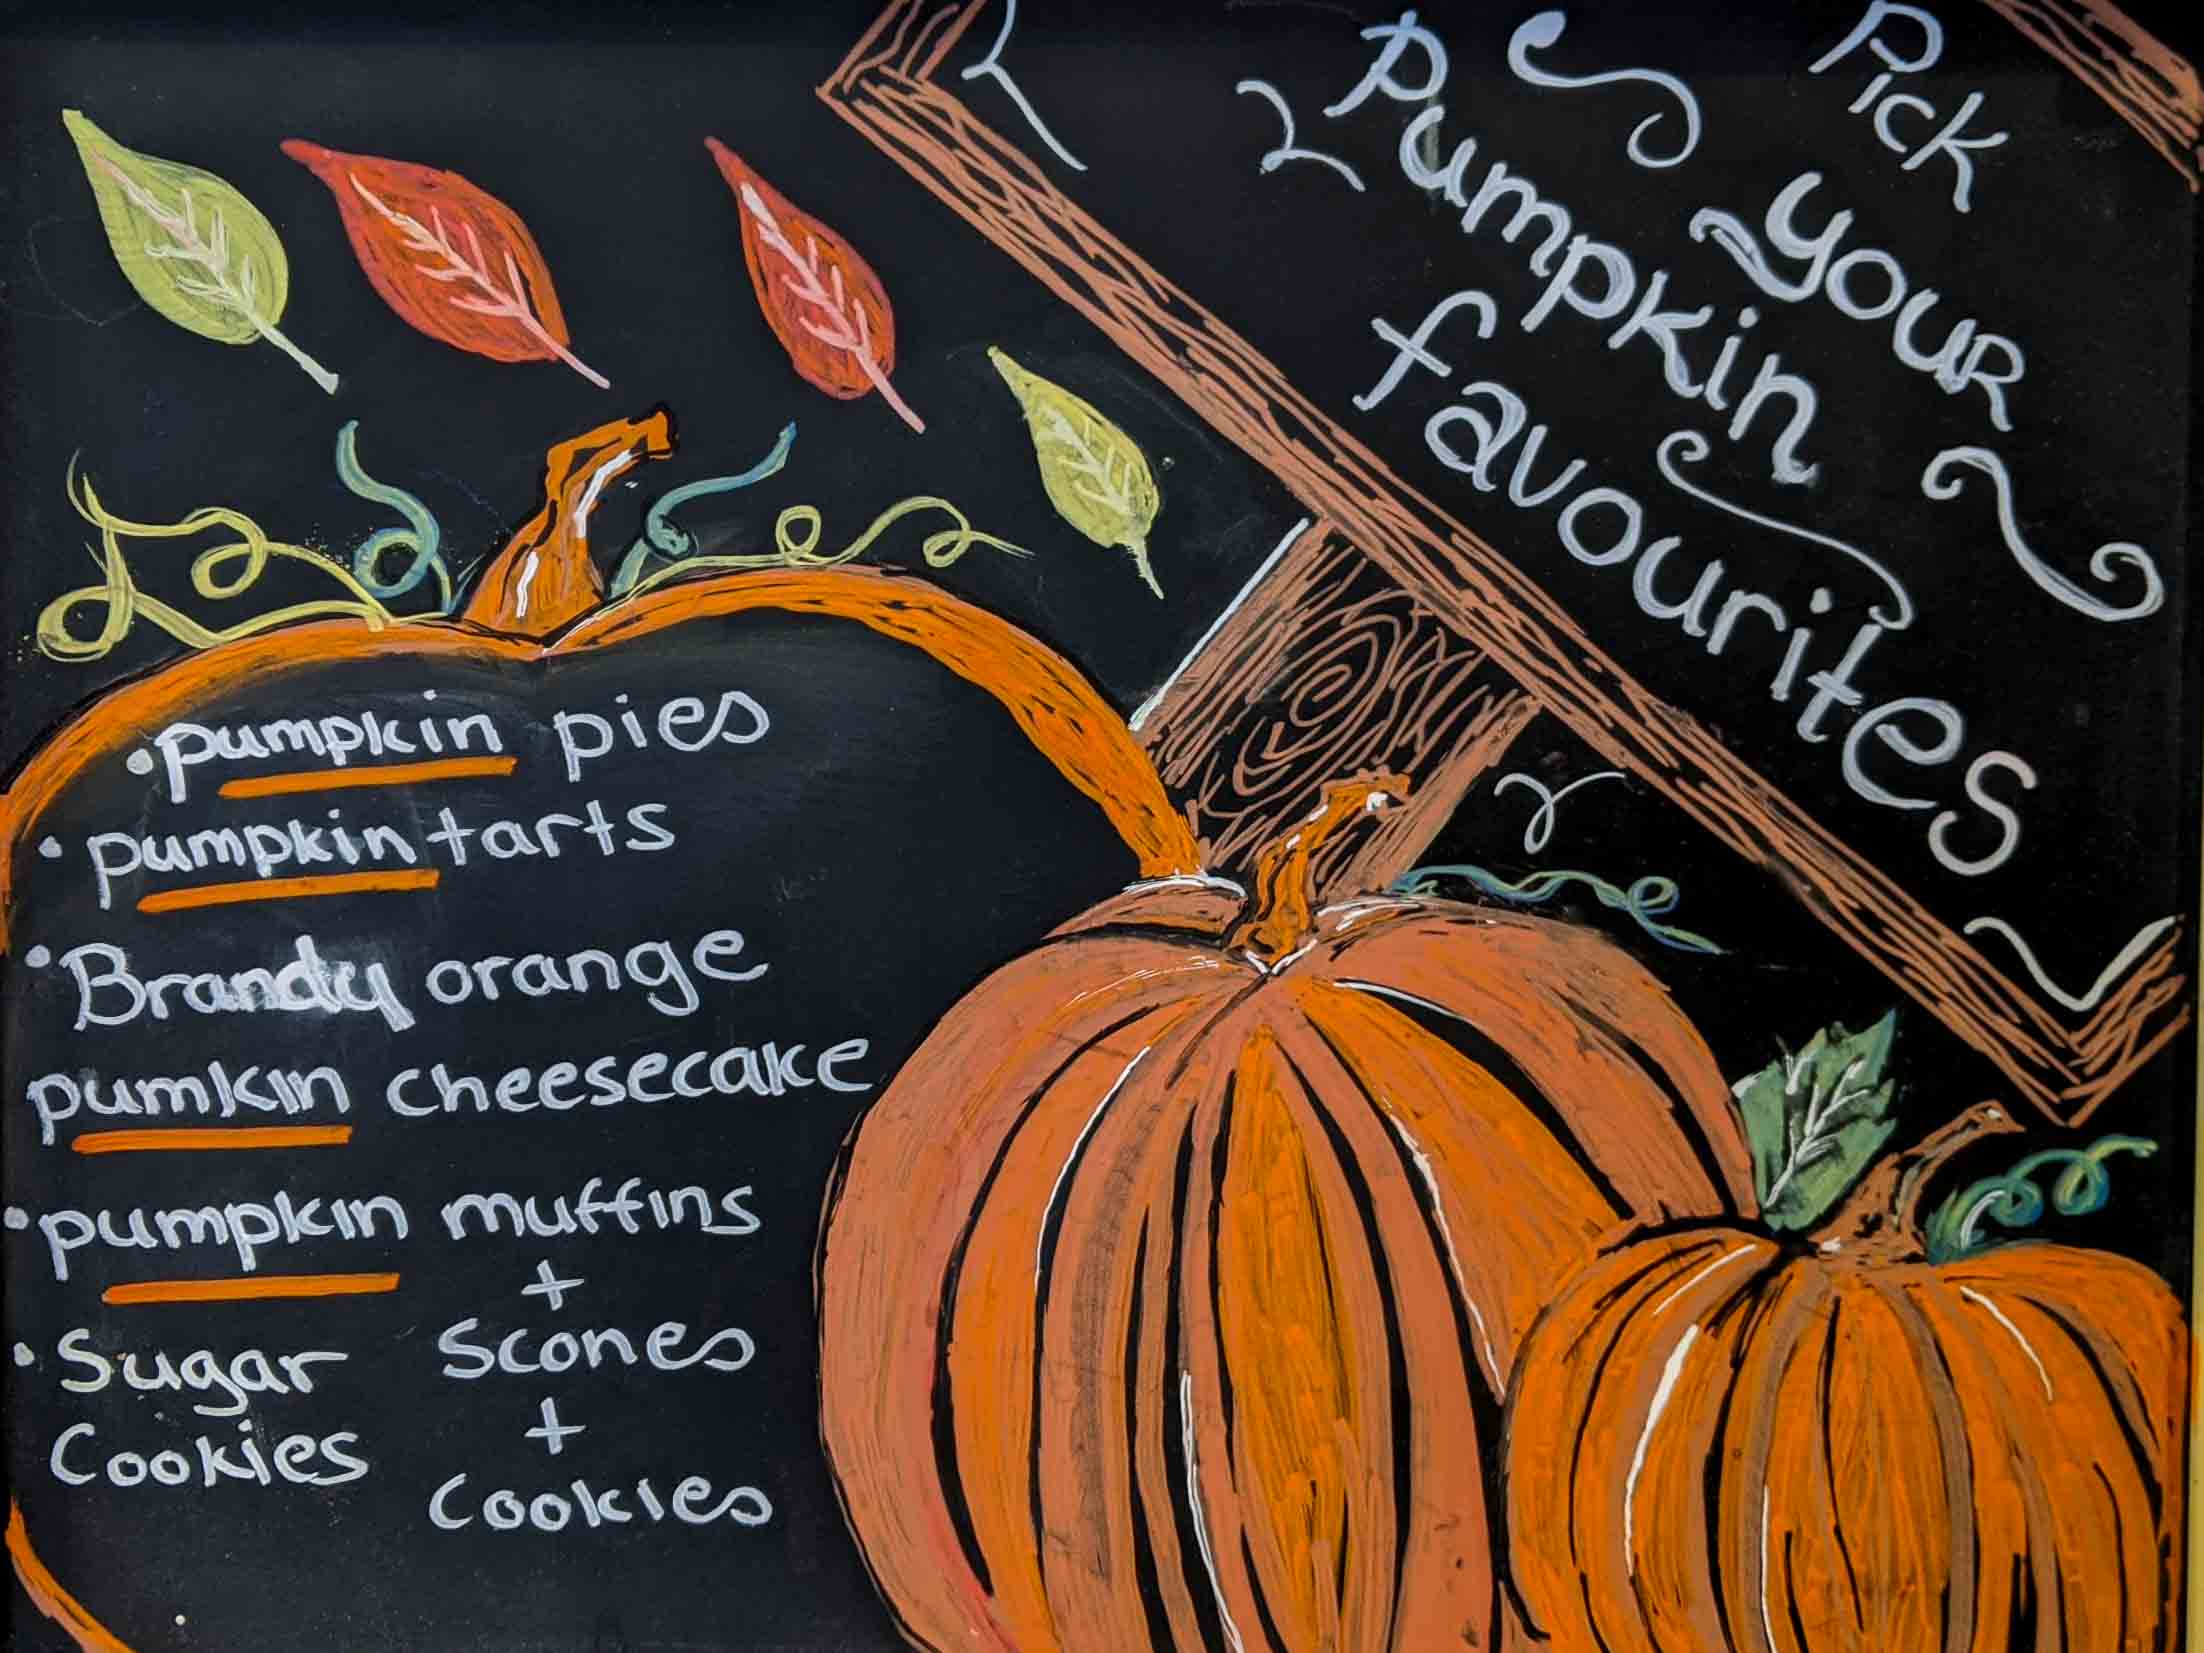 Pick
your
Pumpkin
favourites
• pumpkin pies
• pumpkin tarts
• Brandy orange
pumkin cheesecake
• pumpkin muffins
+
Scones
+
Cookies
• Sugar
Cookies